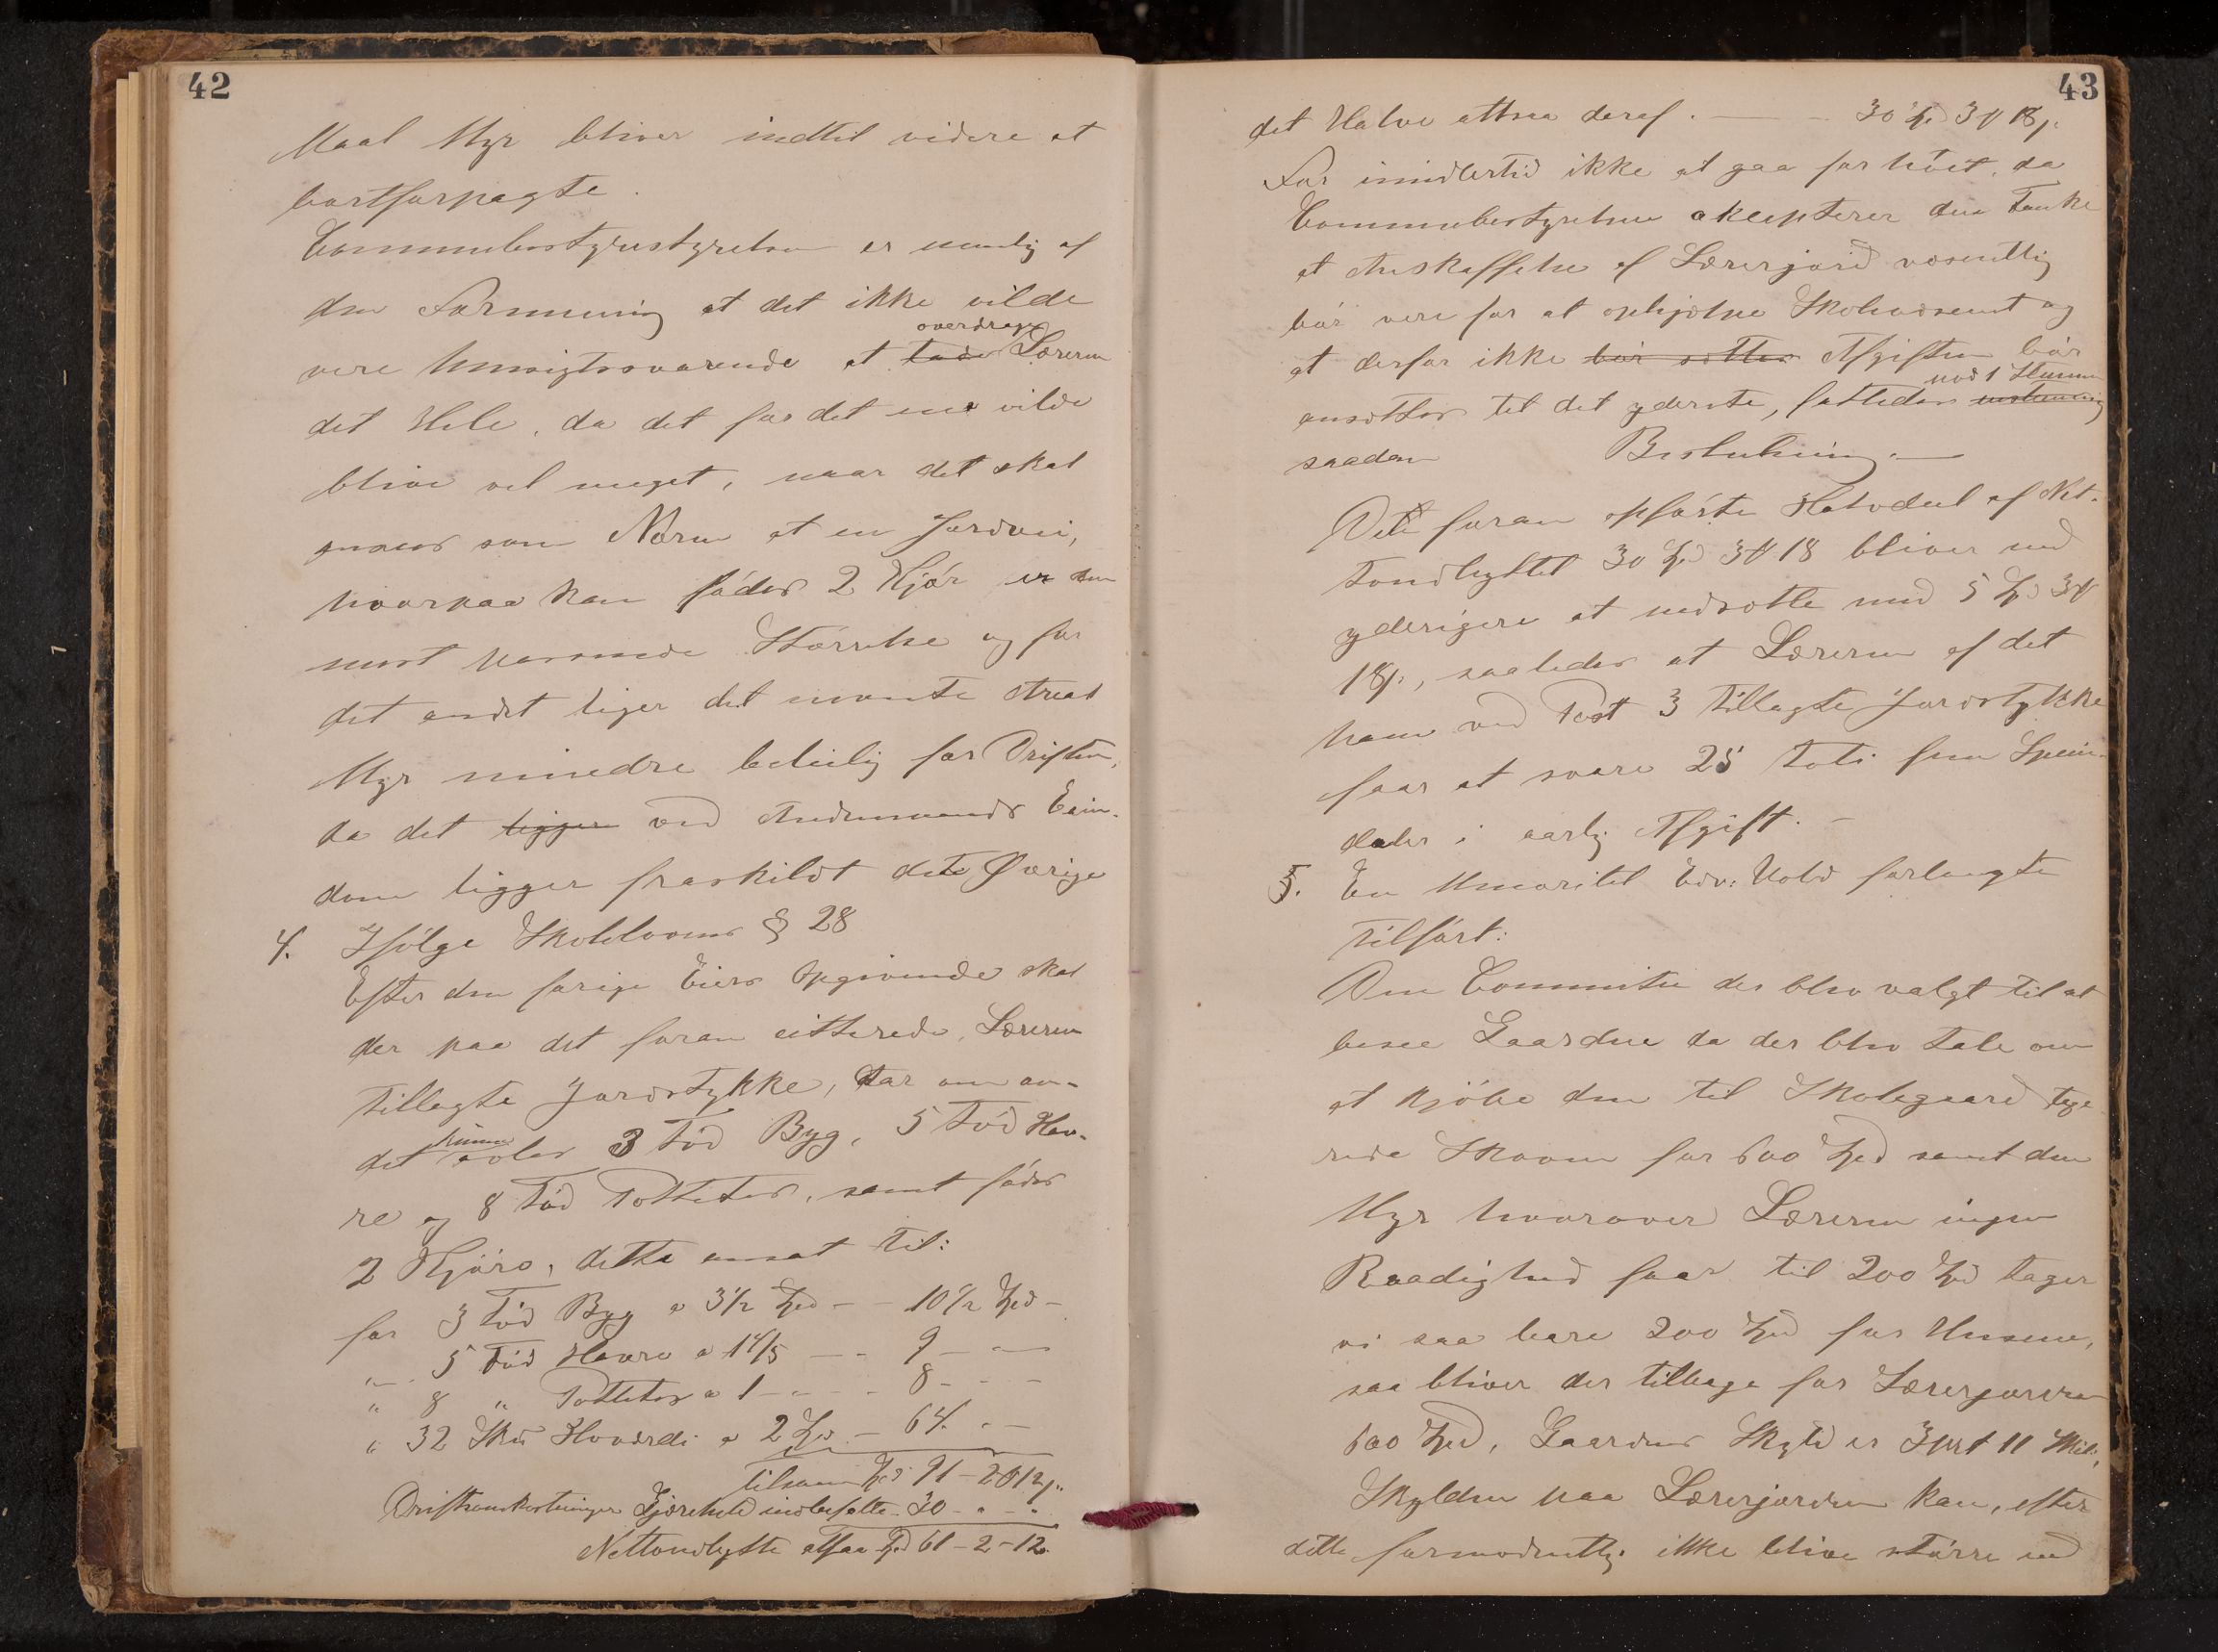 42
Maal Myr bliver indtil videre at
bortforpagte.
Communebestyrestyrelsen er nemlig af
den Formening at det ikke vilde
være hensigtssvarende at lade overdrage Læreren
det Hele, da det for det ene vilde
blive vel meget, naar det skal
ansees som Norm at en Jordvei,
hvorpaa kan födes 2 Kjör er den
mest passende Störrelse og for
det andet liger det nævnte Areal
Myr mindre beleilig for Driften,
da det ligger ved Andenmands Eien-
dom ligger fraskildt det Övrige
4. Ifölge Skolelovens § 28
Efter den forige Eiers Opgivende skal
der paa det foran citterede, Læreren
tillagte Jordstykke, Aar om an-
det kunne avles 3 Töd Byg, 5 Töd Hav-
re og 8 Töd Potteter, samt födes
2 Kjör, dette ansat til:
for 3 Töd Byg a 3 1/2 Spd - - 10 1/2 Spd -
" 5 Töd Havre a 1 4/5 - - 9 - -
" 8 " Potteter a 1 - - - 8 - - -
" 32 Sku Hovördi a 2 Spd - 64. - -
Tilsam Spd 91 - 2 12 s.
Driftsomkostninger Gjærehold indbefatte - 30 - " - "
Nettoudbytte altsaa Spd 61 - 2 - 12.
43
det Halve altsaa deraf. - 30 Spd 3 18 s.
For imidlertid ikke at gaa for höit, da
Communebestyrelsen aksepterer den Tanke
at Anskaffelse af Lærerjord væsentlig
bör være for at ophjælpe Skolevæsenet og
at derfor ikke bör sættes Afgiften bör
ansættes til det yderste, fattedes mod 1 Stemme
saadan Beslutning. -
Den foran opförte Halvdeel af Net-
toudbyttet 30 Spd 3 18 bliver end
yderigere at nedsætte med 5 Spd 3
18 s., saaledes at Læreren af det
ham ved Post 3 tillagte Jordstykke
faar at svare 25 toti fem Speci-
daler i aarlig Afgift. -
5. En Minoritet Edv: Hold forlangte
tilfört:
Den Committe der blev valgt til at
besee Gaardene da der blev Tale om
at kjöbe dem til Skolegaard tage
rede Skoven for 600 Spd samt den
Myr hvorover Læreren ingen
Raadighed faar til 200 Spd tager
vi saa bare 200 Spd for Husene,
saa bliver der tilbage for Lærerjorden
600 Spd, Gaardens Skyld er 3 ort 11 Skil;
Skylden paa Lærerjorden kan, efter
dette formodentlig ikke blive större end